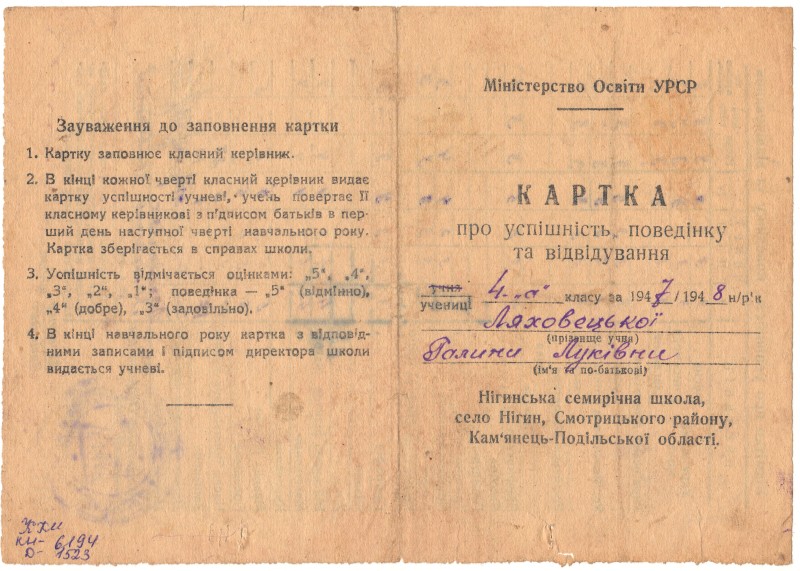 Зауваження до заповнення картки
1. Картку заповнює класний керівник.
2. В кінці кожної чверті класний керівник видає
картку успішності учневі, учень повертає її
класному керівникові з підписом батьків в пер-
ший день наступної чверті навчального року.
Картка зберігається в справах школи.
3. Успішність відмічається оцінками: „5“, „4“,
„3“, „2“, „1“; поведінка — „5“ (відмінно),
„4“ (добре), „3“ (задовільно).
4. В кінці навчального року картка з відповід-
ними записами і підписом директора школи
видається учневі.
ККМ
КН- 6194
Д- 1523
Міністерство Освіти УРСР
КАРТКА
про успішність, поведінку
та відвідування
учня
учениці 4 „а“ класу за 1947/1948 н/р'к
Ляховецької
(прізвище учня)
Галини Луківни
(ім'я та по-батькові)
Нігинська семирічна школа,
село Нігин, Смотрицького району,
Кам'янець-Подільської області.